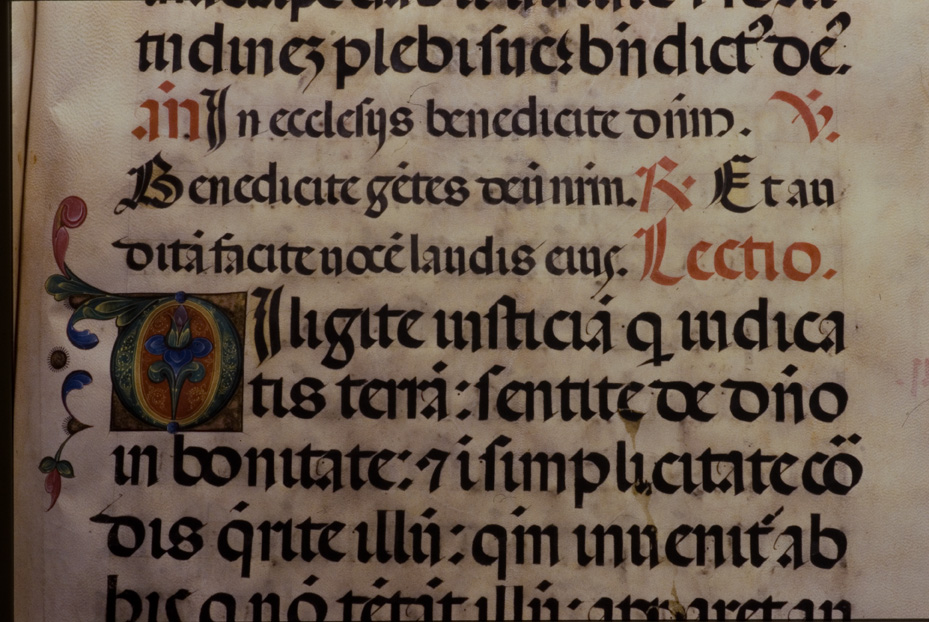 tudinez plebi suę: bn̄dict⁹ de᷒.
.añ In ecclesijs benedicite dñm. V.
Benedicite gētes deū nr̄m. R. Et au
dită facite uocē laudis eius. Lectio.
Diligite iusticiā q iudica
tis terrā: sentite de dño
in bonitate: ⁊ i simplicitate cō
dis q̄rite illū: qm̄ inuenit᷑ ab
his q nō tētāt illū: apparet au